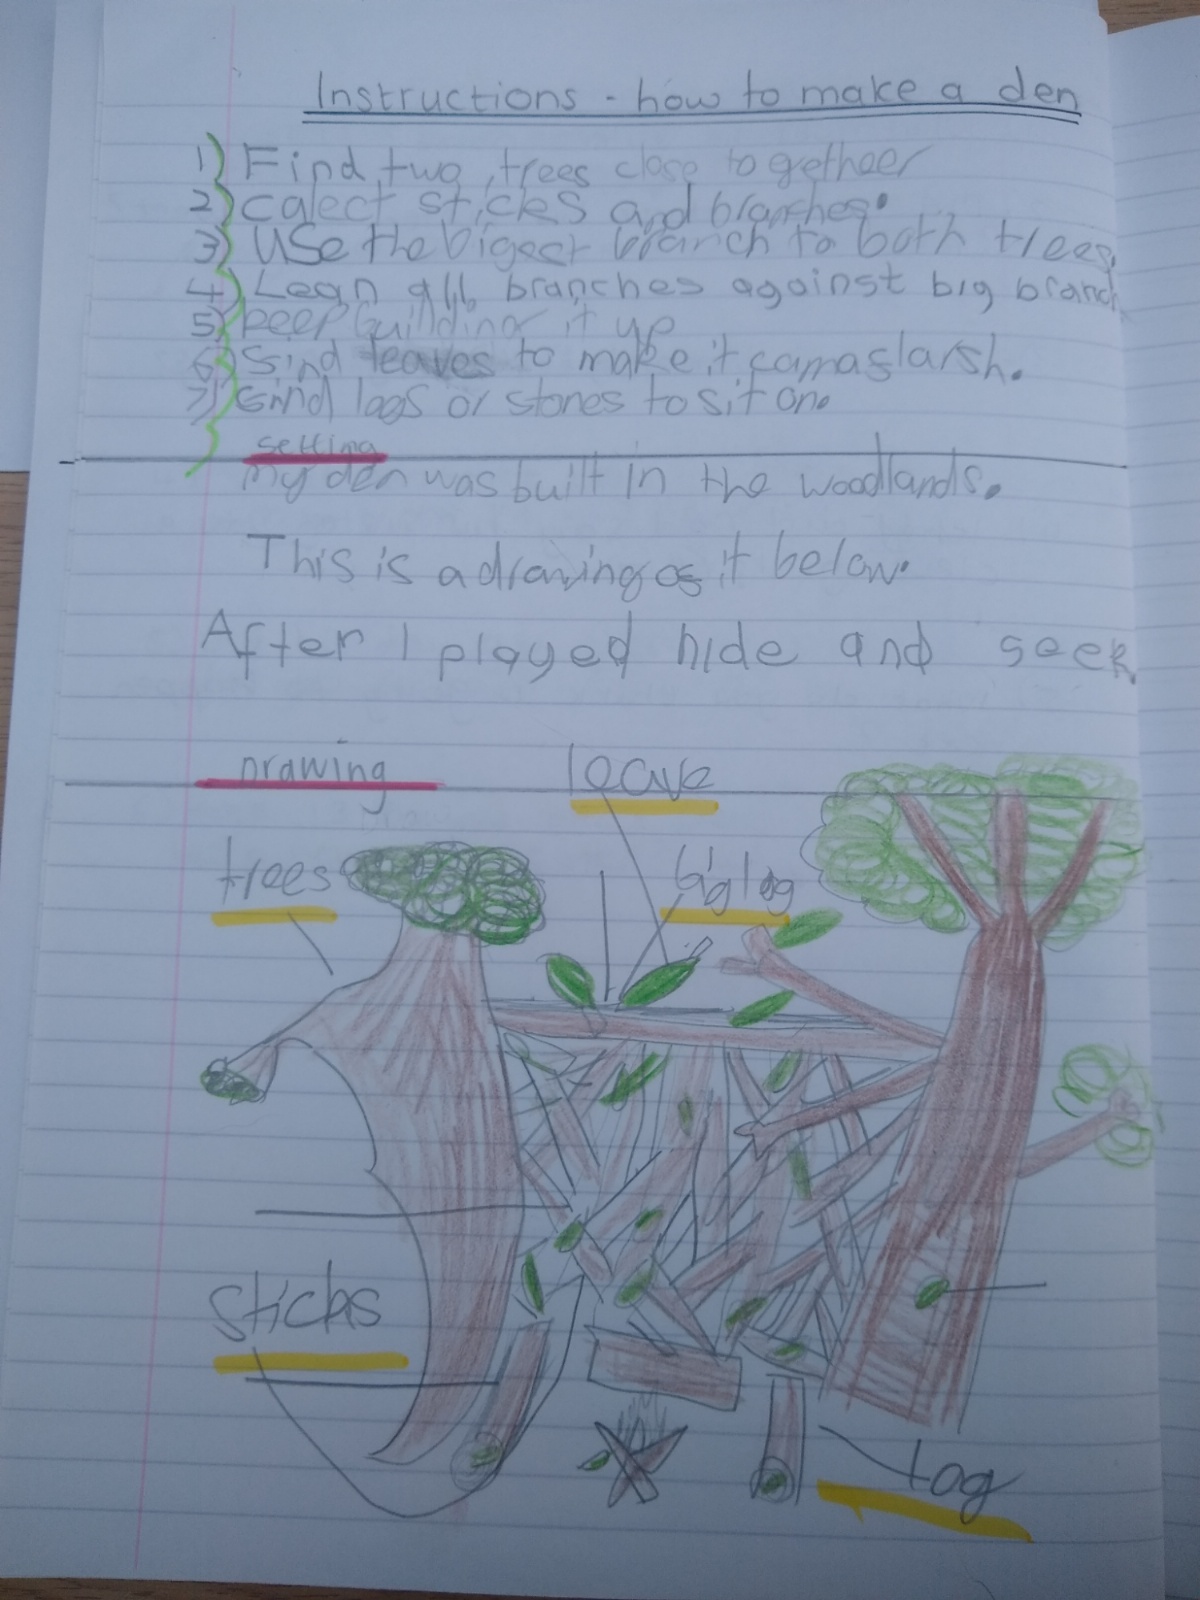 Instructions - how to make a den
1) Find two trees close togetheer
2) calect sticks and branhes.
3) Use the bigest branch to both trees.
4) Lean all branches against big branch
5) keep building it up
6) find leaves to make it camaflarsh.
7) find logs or stones to sit on.
setting
my den was built in the woodlands.
This is a drawing of it below.
After I played hide and seek.
Drawing
leave
trees
big log
sticks
log